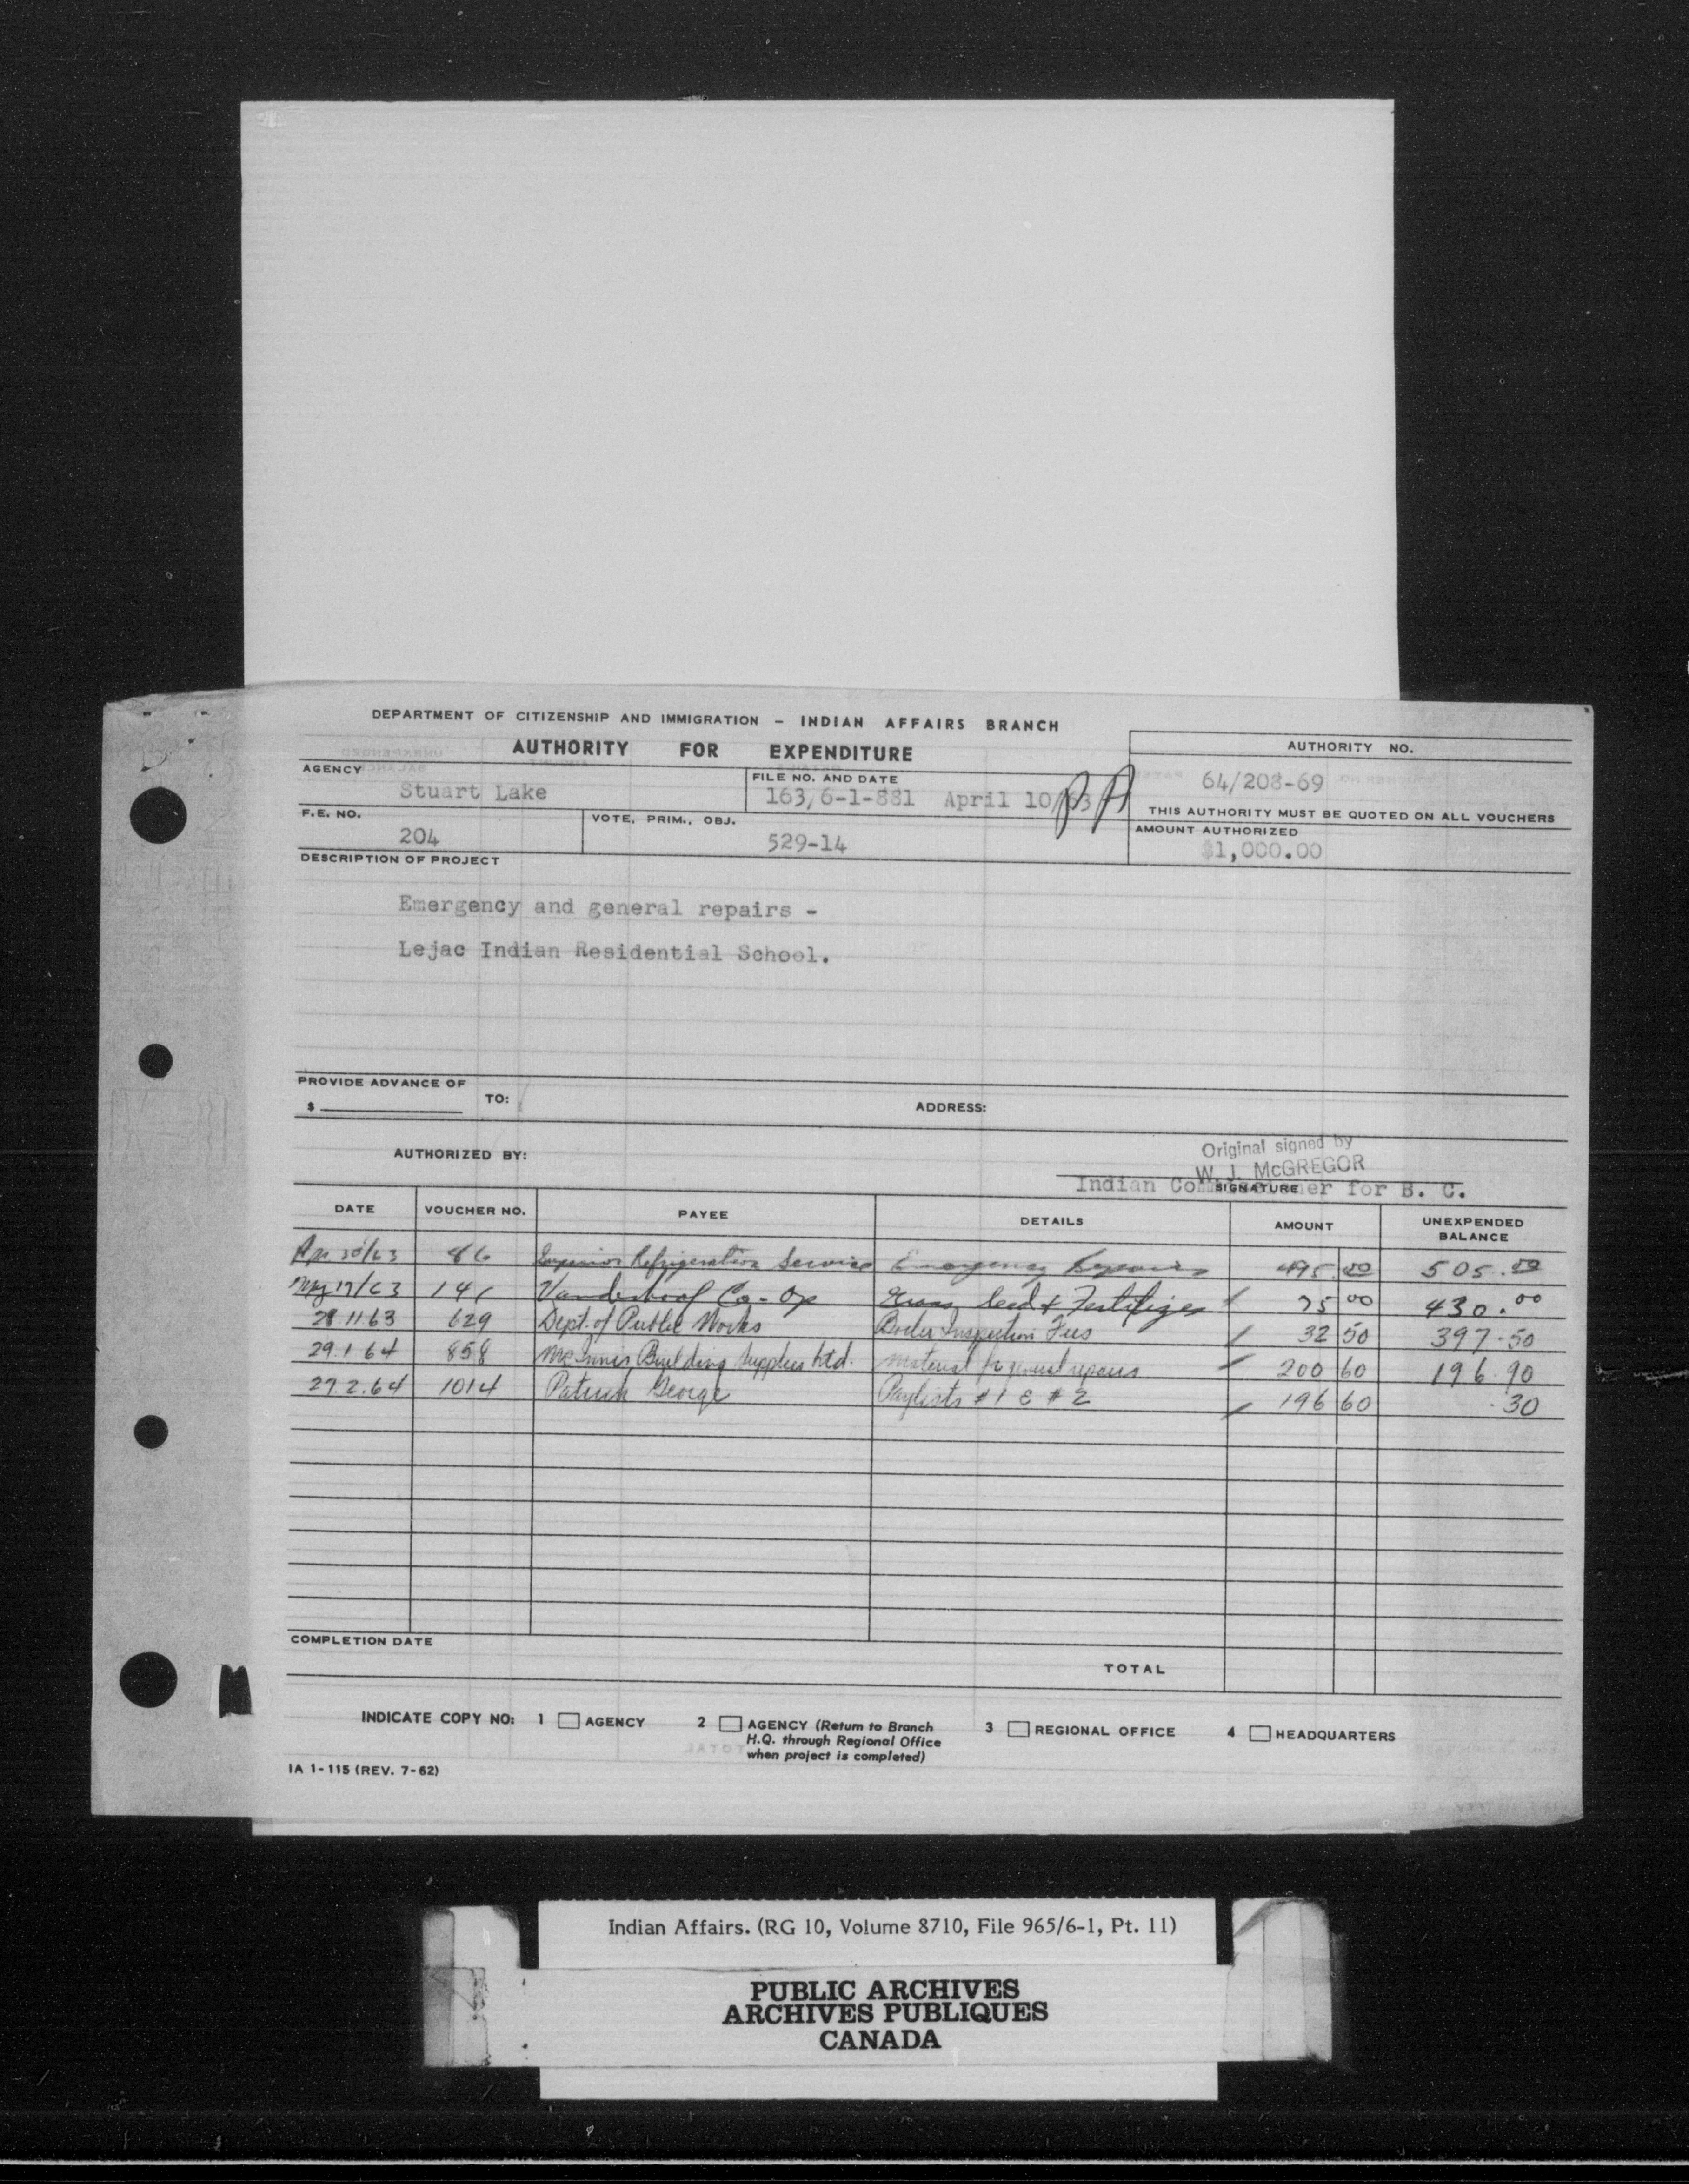 DEPARTMENT OF CITIZENSHIP AND IMMIGRATION – INDIAN AFFAIRS BRANCH
AUTHORITY FOR EXPENDITURE
AUTHORITY NO.
AGENCY
Stuart Lake
FILE NO. AND DATE
163/6-1-881 April 10/63
64/208-69
THIS AUTHORITY MUST BE QUOTED ON ALL VOUCHERS
F.E. NO.
204
VOTE, PRIM., OBJ.
529-14
AMOUNT AUTHORIZED
$1,000.00
DESCRIPTION OF PROJECT
Emergency and general repairs -
Lejac Indian Residential School.
PROVIDE ADVANCE OF
$ TO: ADDRESS:
AUTHORIZED BY:
Original signed by
W. J. McGREGOR
Indian Commissioner for B. C.
SIGNATURE
DATE VOUCHER NO. PAYEE DETAILS AMOUNT UNEXPENDED BALANCE
Apr 30/63 86 Superior Refrigeration Service Emergency Repairs 495.00 505.00
May 17/63 146 Vanderhoof Co-Op Grass Seed & Fertilizer 75 00 430.00
28 11 63 629 Dept. of Public Works Boiler Inspection Fees 32 50 397.50
29.1 64 858 McInnis Building Supplies Ltd. Material for general repairs 200 60 196.90
27.2.64 1014 Patrick George Paylists #1 & #2 196 60 .30
COMPLETION DATE
TOTAL
INDICATE COPY NO: 1 AGENCY 2 AGENCY (Return to Branch H.Q. through Regional Office when project is completed) 3 REGIONAL OFFICE 4 HEADQUARTERS
IA 1-115 (REV. 7-62)
Indian Affairs. (RG 10, Volume 8710, File 965/6-1, Pt. 11)
PUBLIC ARCHIVES
ARCHIVES PUBLIQUES
CANADA